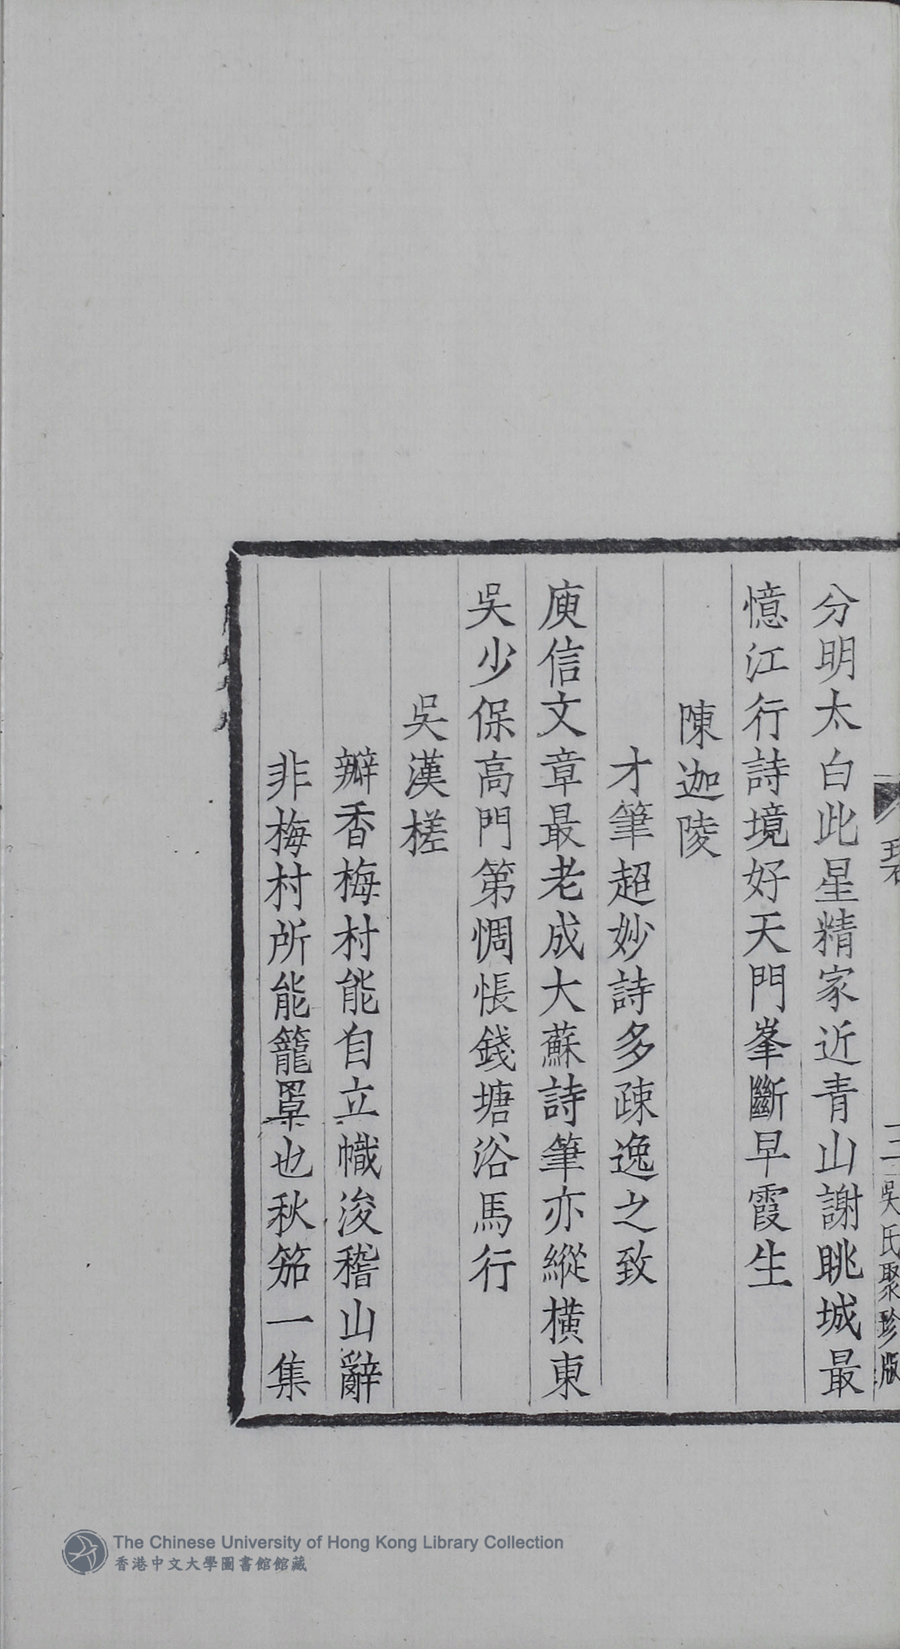 分明太白此星精家近青山謝眺城最
憶江行詩境好天門峯斷早霞生
陳迦陵
才筆超妙詩多疎逸之致
庾信文章最老成大蘇詩筆亦縱橫東
吳少保高門第惆悵錢塘浴馬行
吳漢槎
瓣香梅村能自立幟浚稽山辭
非梅村所能籠罩也秋笳一集
二
吳氏聚珍版
The Chinese University of Hong Kong Library Collection
香港中文大學圖書館館藏